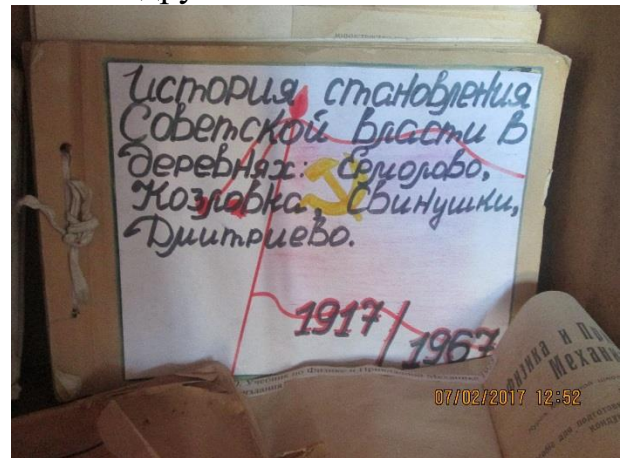 История становления
Советской власти в
деревнях: Ермолово,
Козловка, Свинушки,
Дмитриево.
1917/1967
Физика и
Механи
07/02/2017 12:52